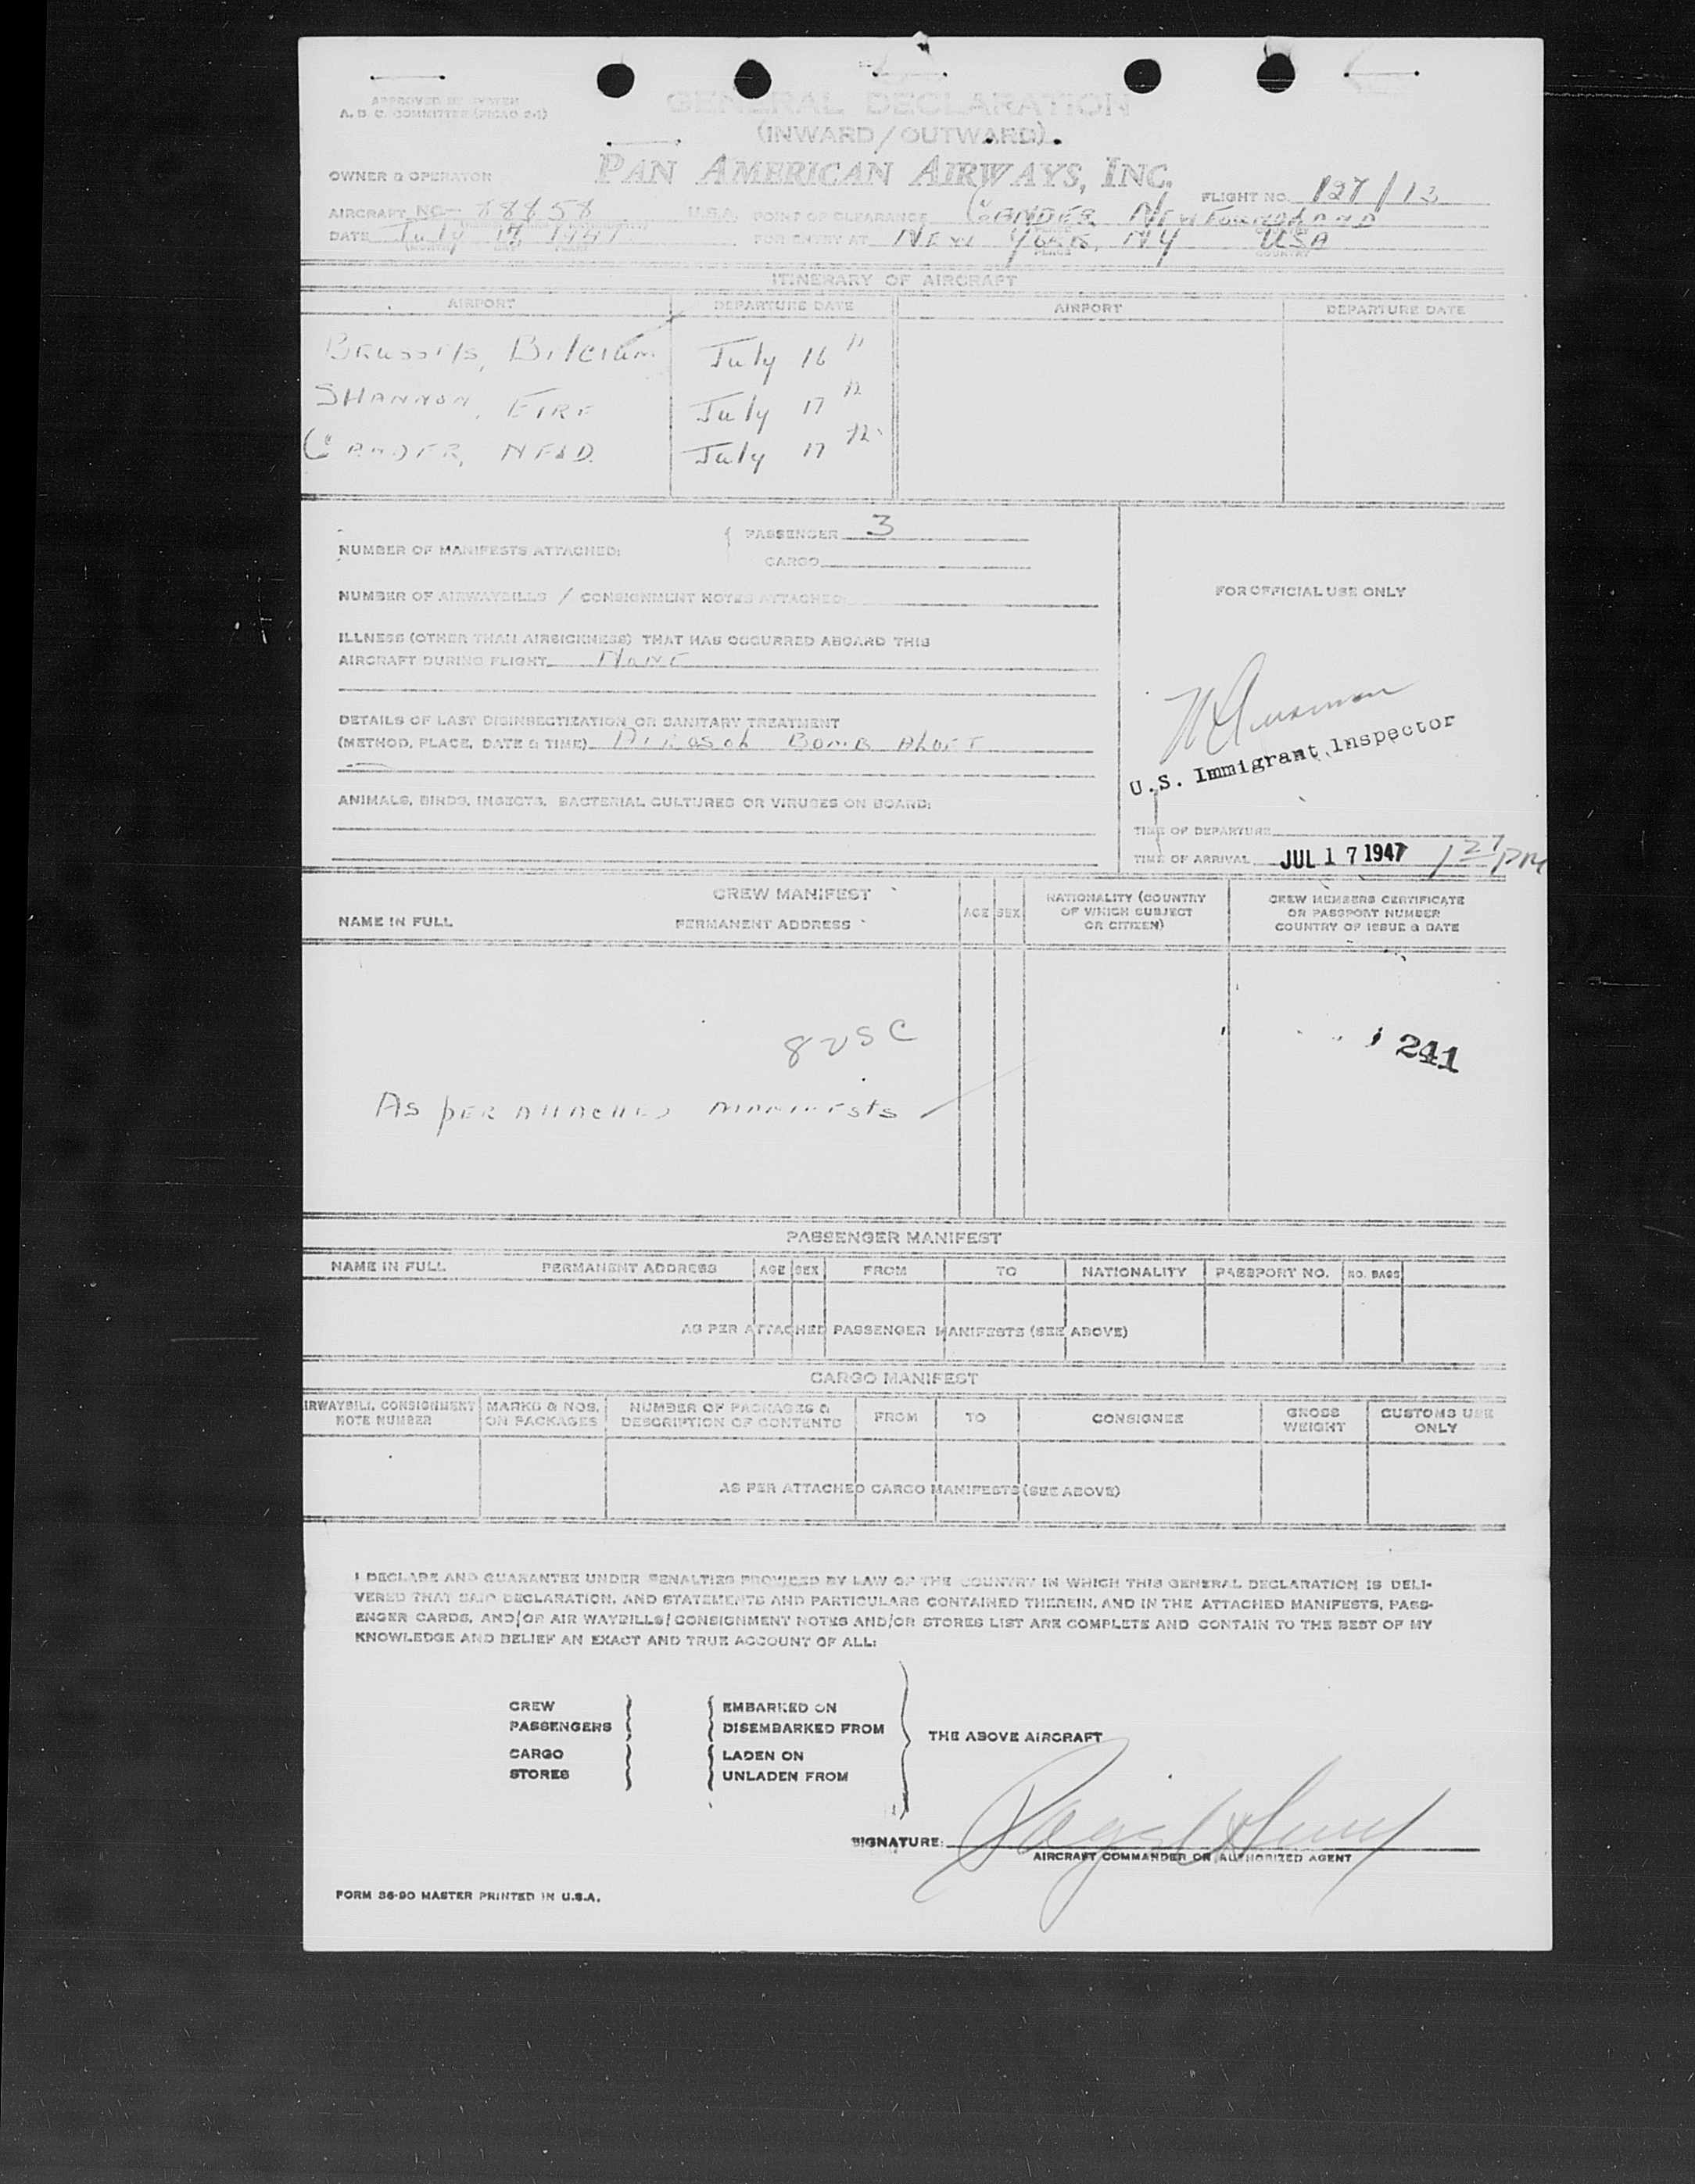 APPROVED BY SYSTEM
A. D. C. COMMITTEE (PICAO 2-1)
GENERAL DECLARATION
(INWARD / OUTWARD)
OWNER & OPERATOR PAN AMERICAN AIRWAYS, INC. FLIGHT NO. 127/13
AIRCRAFT NC- 88858 U.S.A. POINT OF CLEARANCE GANDER NEWFOUNDLAND
DATE July 17 1947 FOR ENTRY AT NEW YORK, NY USA
ITINERARY OF AIRCRAFT
AIRPORT DEPARTURE DATE AIRPORT DEPARTURE DATE
BRUSSELS, BELGIUM July 16 th
SHANNON, EIRE July 17 th
GANDER, NFLD. July 17 th
PASSENGER 3
NUMBER OF MANIFESTS ATTACHED:
CARGO
NUMBER OF AIRWAYBILLS / CONSIGNMENT NOTES ATTACHED:
FOR OFFICIAL USE ONLY
ILLNESS (OTHER THAN AIRSICKNESS) THAT HAS OCCURRED ABOARD THIS
AIRCRAFT DURING FLIGHT NONE
DETAILS OF LAST DISINSECTIZATION OR SANITARY TREATMENT
(METHOD, PLACE, DATE & TIME) AEROSOL BOMB ALOFT
U.S. Immigrant Inspector
ANIMALS, BIRDS, INSECTS, BACTERIAL CULTURES OR VIRUSES ON BOARD:
TIME OF DEPARTURE
TIME OF ARRIVAL JUL 17 1947 1 27 PM
CREW MANIFEST
NAME IN FULL PERMANENT ADDRESS AGE SEX NATIONALITY (COUNTRY OF WHICH SUBJECT OR CITIZEN) CREW MEMBERS CERTIFICATE OR PASSPORT NUMBER COUNTRY OF ISSUE & DATE
8 USC
241
AS PER ATTACHED MANIFESTS
PASSENGER MANIFEST
NAME IN FULL PERMANENT ADDRESS AGE SEX FROM TO NATIONALITY PASSPORT NO. NO. BAGS
AS PER ATTACHED PASSENGER MANIFESTS (SEE ABOVE)
CARGO MANIFEST
IRWAYBILL CONSIGNMENT NOTE NUMBER MARKS & NOS. ON PACKAGES NUMBER OF PACKAGES & DESCRIPTION OF CONTENTS FROM TO CONSIGNEE GROSS WEIGHT CUSTOMS USE ONLY
AS PER ATTACHED CARGO MANIFESTS (SEE ABOVE)
I DECLARE AND GUARANTEE UNDER PENALTIES PROVIDED BY LAW OF THE COUNTRY IN WHICH THIS GENERAL DECLARATION IS DELI-
VERED THAT SAID DECLARATION, AND STATEMENTS AND PARTICULARS CONTAINED THEREIN, AND IN THE ATTACHED MANIFESTS, PASS-
ENGER CARDS, AND/OR AIR WAYBILLS/CONSIGNMENT NOTES AND/OR STORES LIST ARE COMPLETE AND CONTAIN TO THE BEST OF MY
KNOWLEDGE AND BELIEF AN EXACT AND TRUE ACCOUNT OF ALL:
CREW EMBARKED ON
PASSENGERS DISEMBARKED FROM
THE ABOVE AIRCRAFT
CARGO LADEN ON
STORES UNLADEN FROM
SIGNATURE:
AIRCRAFT COMMANDER OR AUTHORIZED AGENT
FORM 36-90 MASTER PRINTED IN U.S.A.